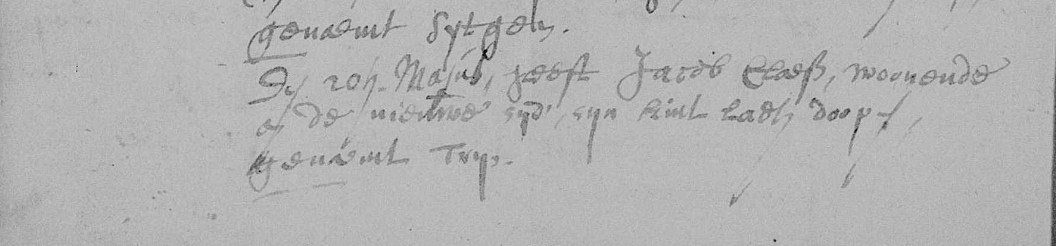 genaemt Sytgen.
Dn 20n. Majus, heeft Jacob Claesz, woonende
op de nieuwe syd', syn kint laeten doop-
genaemt Tryn.